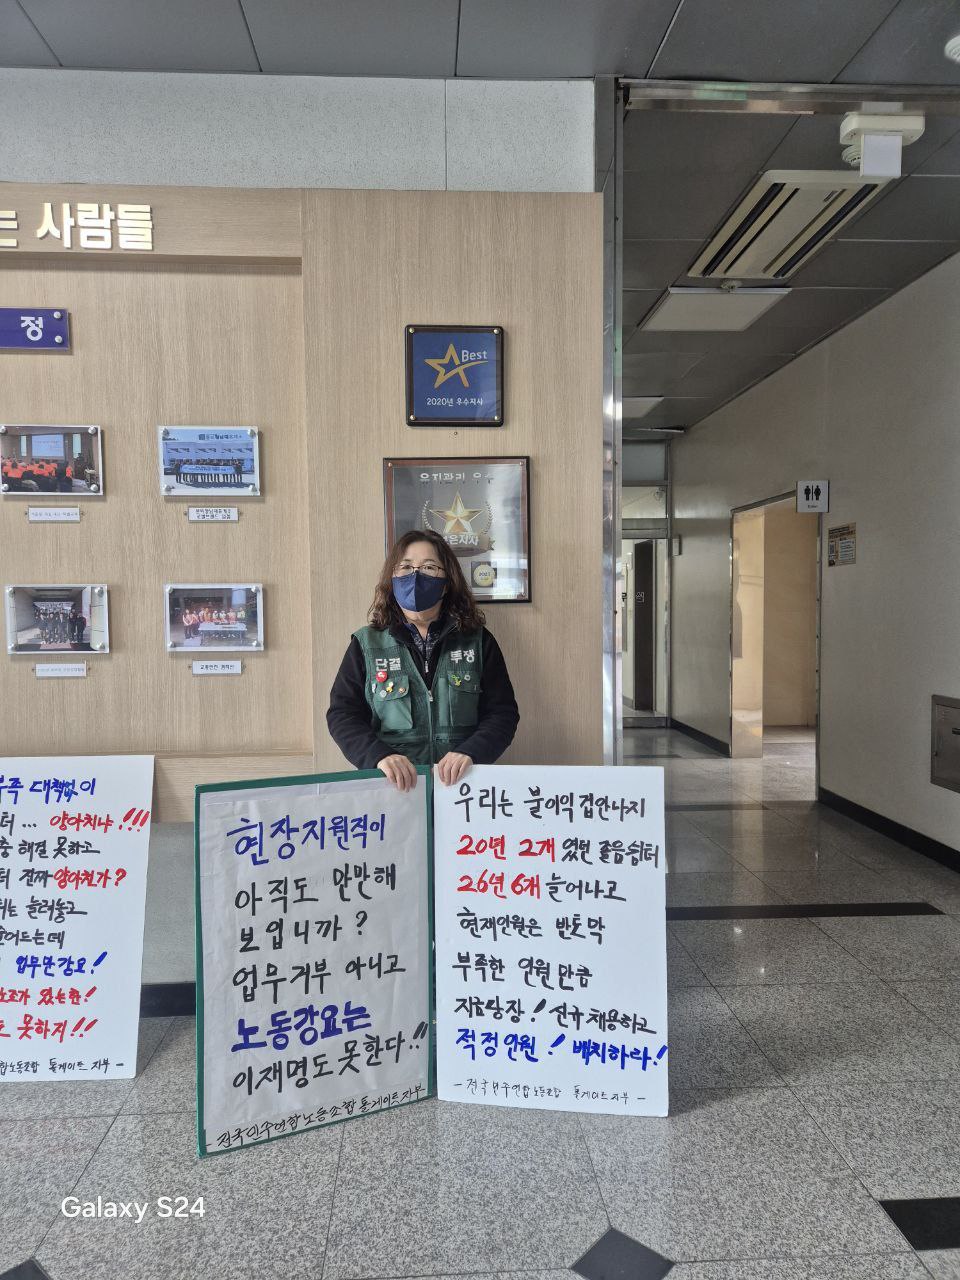 는 사람들
정
Best
2020년 우수지사
유지관리 우수
단결 투쟁
부족 대책없이
터 ... 양아치냐 !!!
중 해결 못하고
터 진짜 양아친가?
터는 늘려놓고
줄어드는데
업무만강요!
노조가 있는한!
도 못하지!!
노동조합 톨게이트 지부 -
현장지원직이
아직도 만만해
보입니까 ?
업무거부 아니고
노동강요는
이재명도 못한다.!!
- 전국민주연합노동조합 톨게이트지부 -
우리는 불이익 겁안나지
20년 2개 였던 졸음쉼터
26년 6개 늘어나고
현재인원은 반토막
부족한 인원만큼
지금당장! 신규채용하고
적정인원! 배치하라!
- 전국민주연합노동조합 톨게이트 지부 -
Galaxy S24